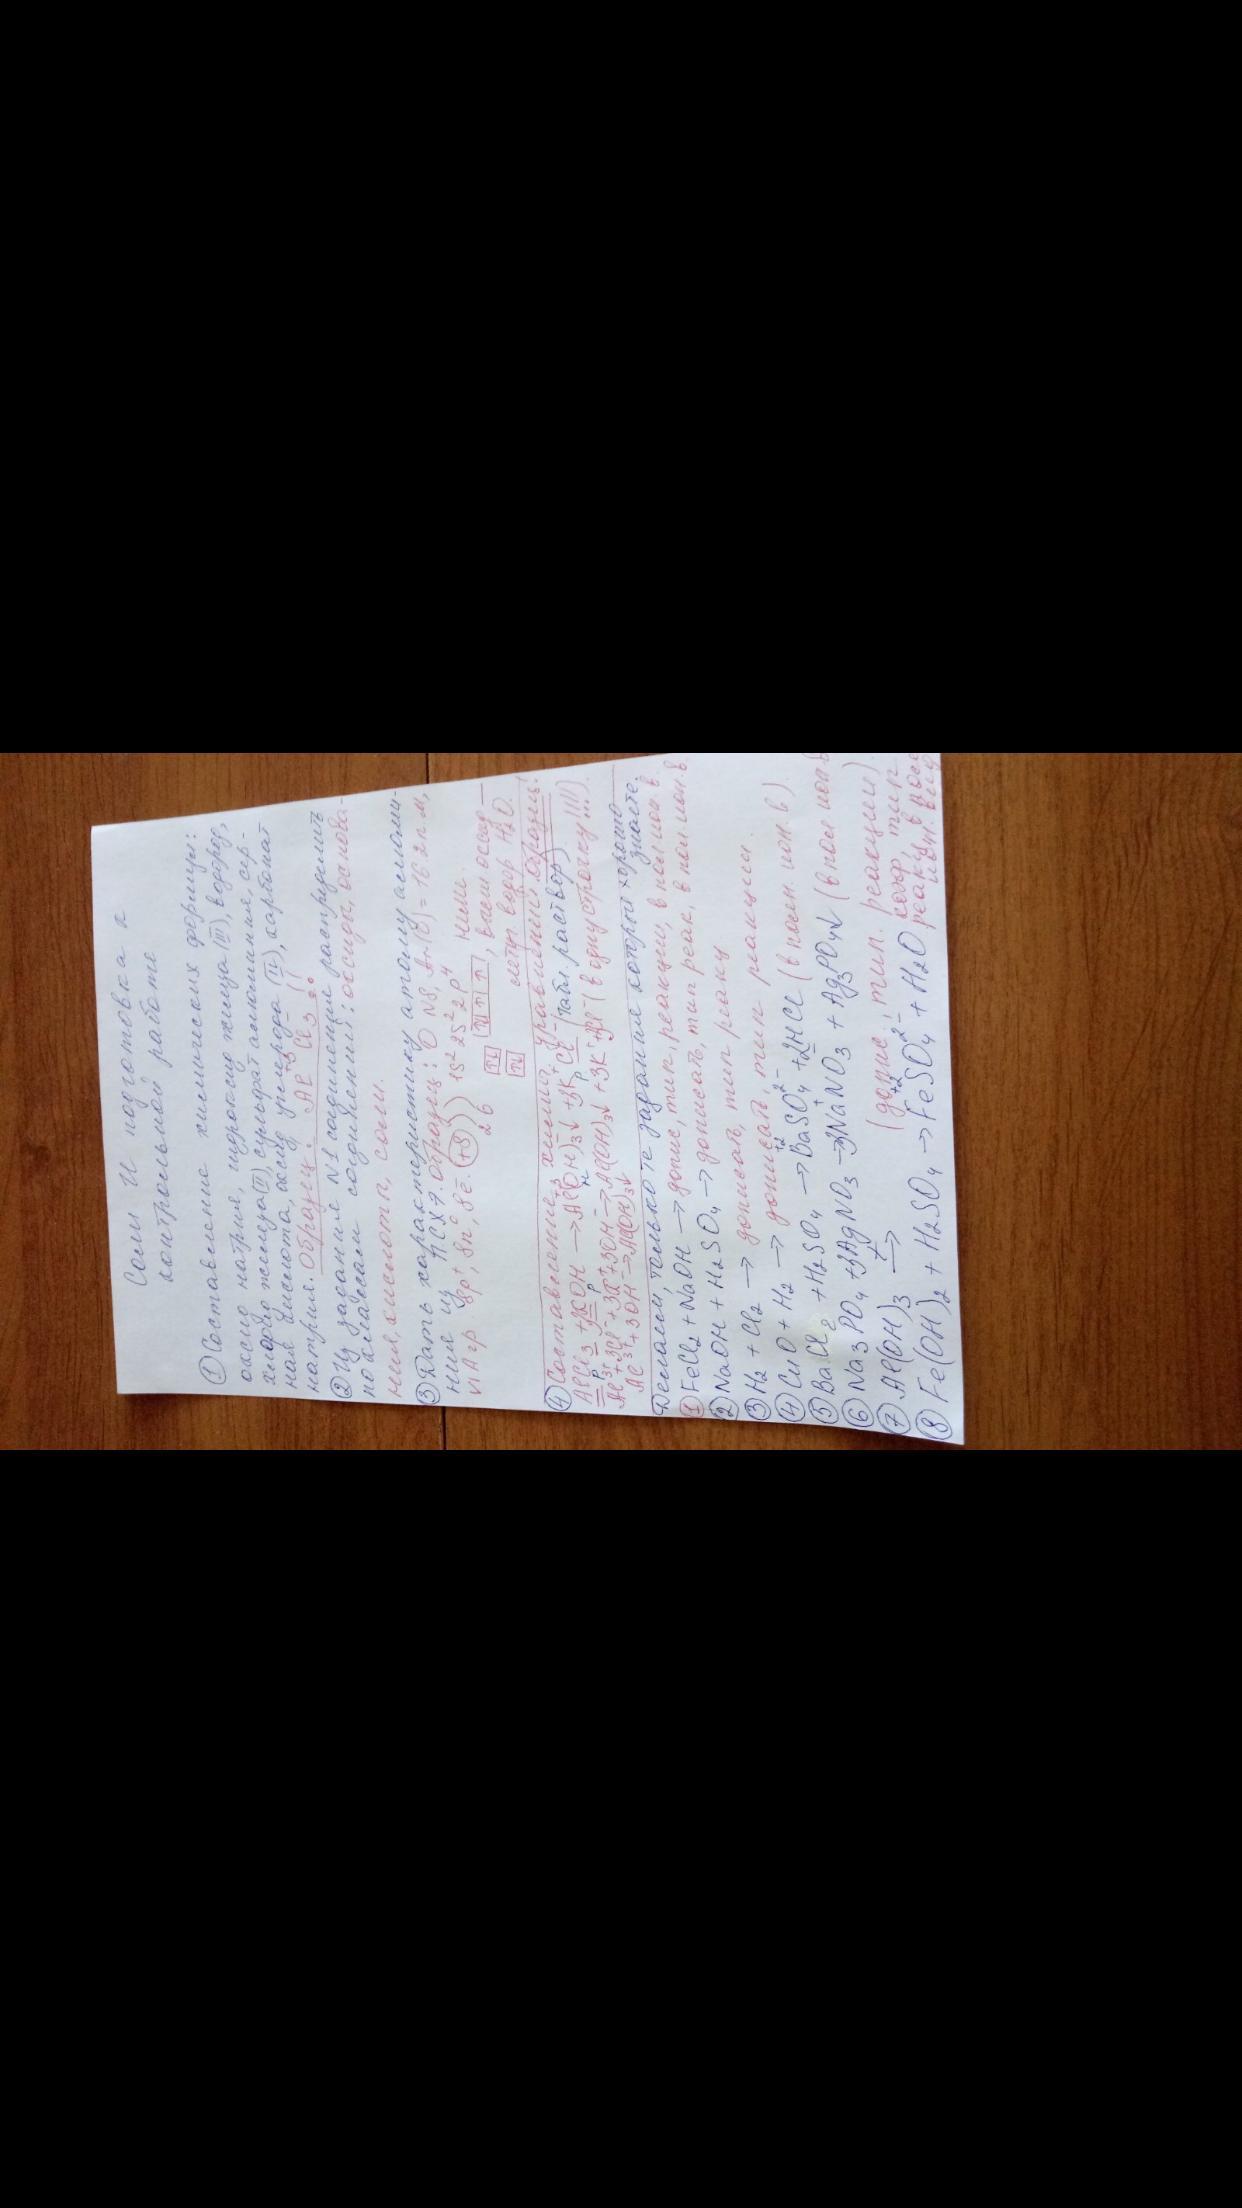 Соли и подготовка к
контрольной работе
① Составление химических формул:
оксид натрия, гидроксид железа (III), водород,
хлорид железа (II), сульфат алюминия, сер-
ная кислота, оксид углерода (IV), карбонат
натрия. Образец: Al⁺³Cl₃⁻ !!
② Из задания N1 соединения распределить
по классам соединений: оксиды, основа-
ния, кислоты, соли.
③ Дать характеристику атому алюми-
ния из ПСХЭ. Образец: O N8, Ar(O) = 16 2 п м,
VI A гр. 8p⁺, 8n⁰, 8ē. (+8) ) ) 1s² 2s² 2p⁴ неме.
2 6 ↑↓ ↑↓ ↑ ↑, высш оксид —
↑↓ летуч. водор H₂O.
④ Составление химия уравнений. Образец!
AlCl₃ + 3KOH → Al(OH)₃↓ + 3KCl (табл. раствор)
Al³⁺ + 3Cl⁻ + 3K⁺ + 3OH⁻ → Al(OH)₃↓ + 3K⁺ + 3Cl⁻ (в одну строчку!!!)
Al³⁺ + 3OH⁻ → Al(OH)₃↓
Делаем, только те задание который хорошо
знаете.
① FeCl₂ + NaOH → допис, тип, реакции, в пол ион в.
② NaOH + H₂SO₄ → дописать, тип реак, в пол ион. в
③ H₂ + Cl₂ → дописать, тип реакц
④ CuO + H₂ → дописать, тип реакции
⑤ BaCl₂ + H₂SO₄ → BaSO₄ + 2HCl (в полн. ион. в)
⑥ Na₃PO₄ + 3AgNO₃ → 3NaNO₃ + Ag₃PO₄↓ (в пол ион в
⑦ Al(OH)₃ →t (допис, тип. реакции)
⑧ Fe(OH)₂ + H₂SO₄ → Fe⁺²SO₄²⁻ + H₂O